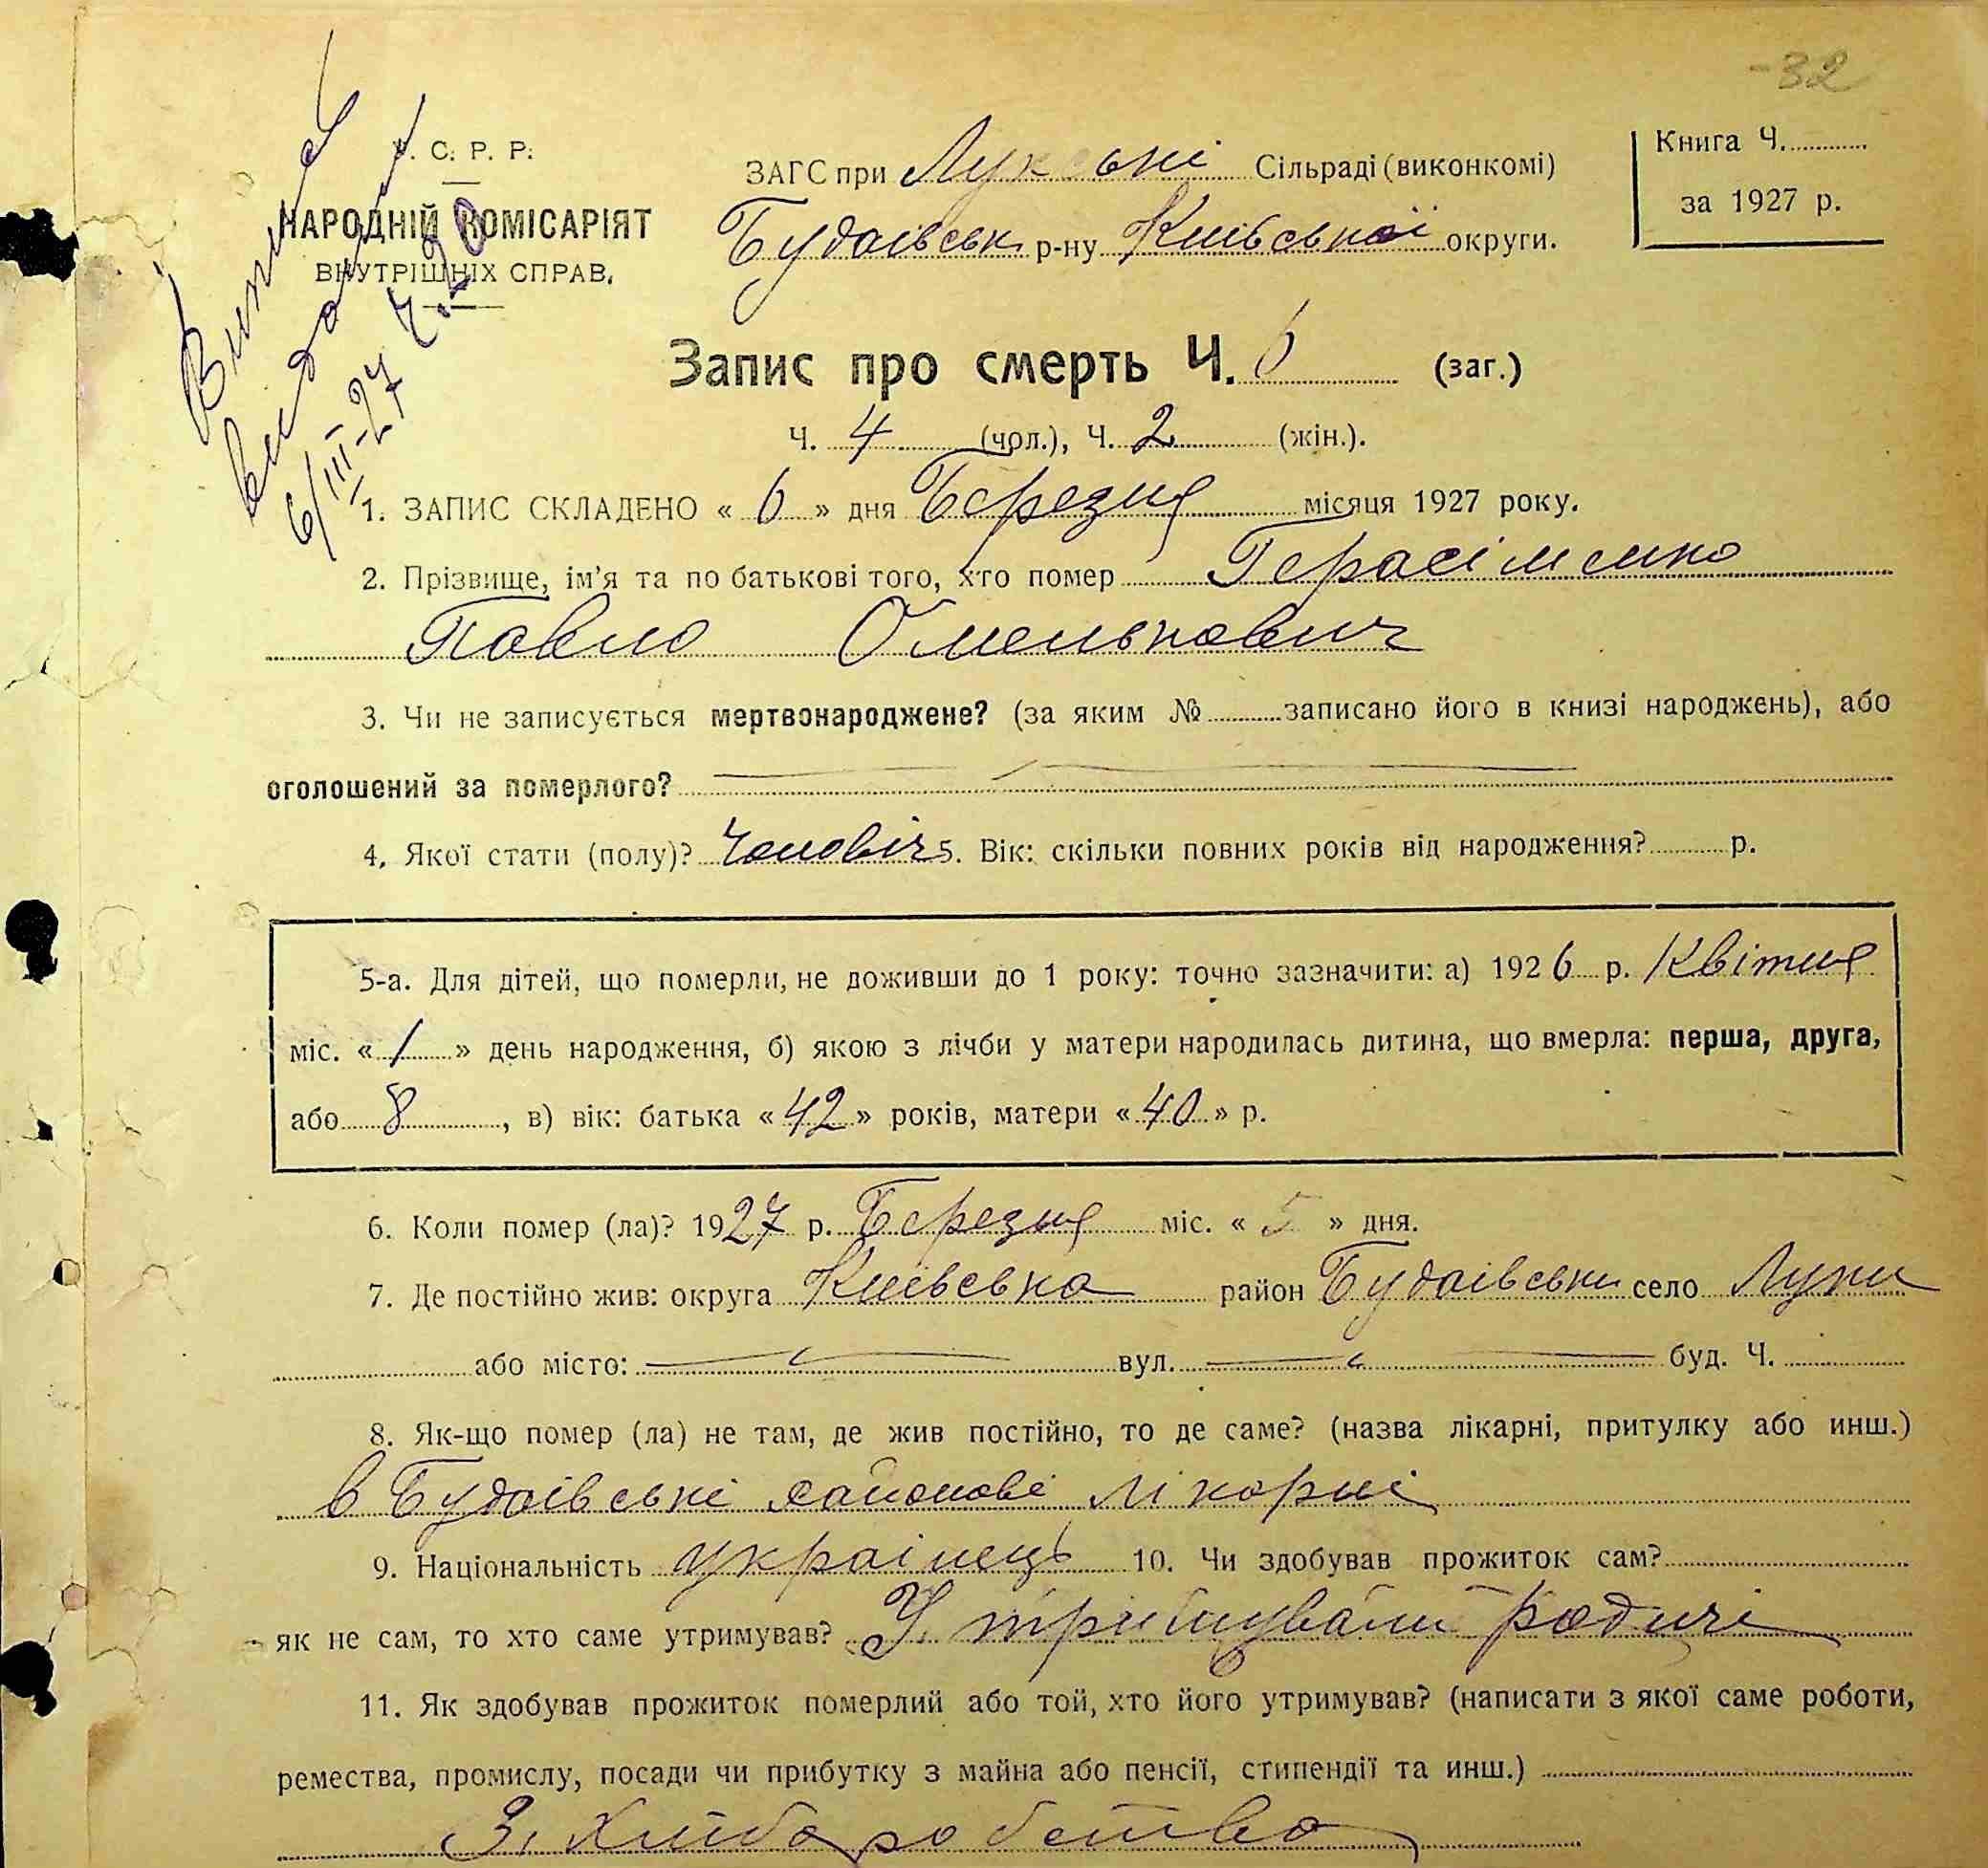 -32
Випис
видана
6/III-27
Ч. 20
У. С. Р. Р.
НАРОДНІЙ КОМІСАРІЯТ
ВНУТРІШНІХ СПРАВ.
ЗАГС при Лукські Сільраді (виконкомі)
Будаівськ р-ну Київської округи.
Книга Ч.
за 1927 р.
Запис про смерть Ч. 6 (заг.)
Ч. 4 (чол.), Ч. 2 (жін.).
1. ЗАПИС СКЛАДЕНО « 6 » дня Березня місяця 1927 року.
2. Прізвище, ім'я та по батькові того, хто помер Герасіменко
Павло Омелькович
3. Чи не записується мертвонароджене? (за яким № записано його в книзі народжень), або
оголошений за померлого?
4. Якої стати (полу)? Чоловіч 5. Вік: скільки повних років від народження? р.
5-а. Для дітей, що померли, не доживши до 1 року: точно зазначити: а) 1926 р. Квітня
міс. « 1 » день народження, б) якою з лічби у матери народилась дитина, що вмерла: перша, друга,
або 8, в) вік: батька « 42 » років, матери « 40 » р.
6. Коли помер (ла)? 1927 р. Березня міс. « 5 » дня.
7. Де постійно жив: округа Київська район Будаівськи село Луки
або місто: вул. буд. Ч.
8. Як-що помер (ла) не там, де жив постійно, то де саме? (назва лікарні, притулку або инш.)
в Будаівські районові лікарні
9. Національність украінець 10. Чи здобував прожиток сам?
як не сам, то хто саме утримував? Утримували родичі
11. Як здобував прожиток померлий або той, хто його утримував? (написати з якої саме роботи,
ремества, промислу, посади чи прибутку з майна або пенсії, стипендії та инш.)
З хліборобства